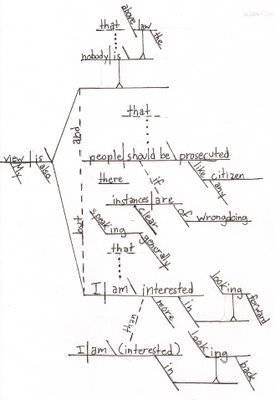 that
above
law
the
nobody is
that
and
people should be prosecuted
view is
My
also
like
any
citizen
there
if
instances are
clear
of
wrongdoing
speaking
generally
but
that
I am interested
more
in
looking
forward
than
I am (interested)
in
looking
back